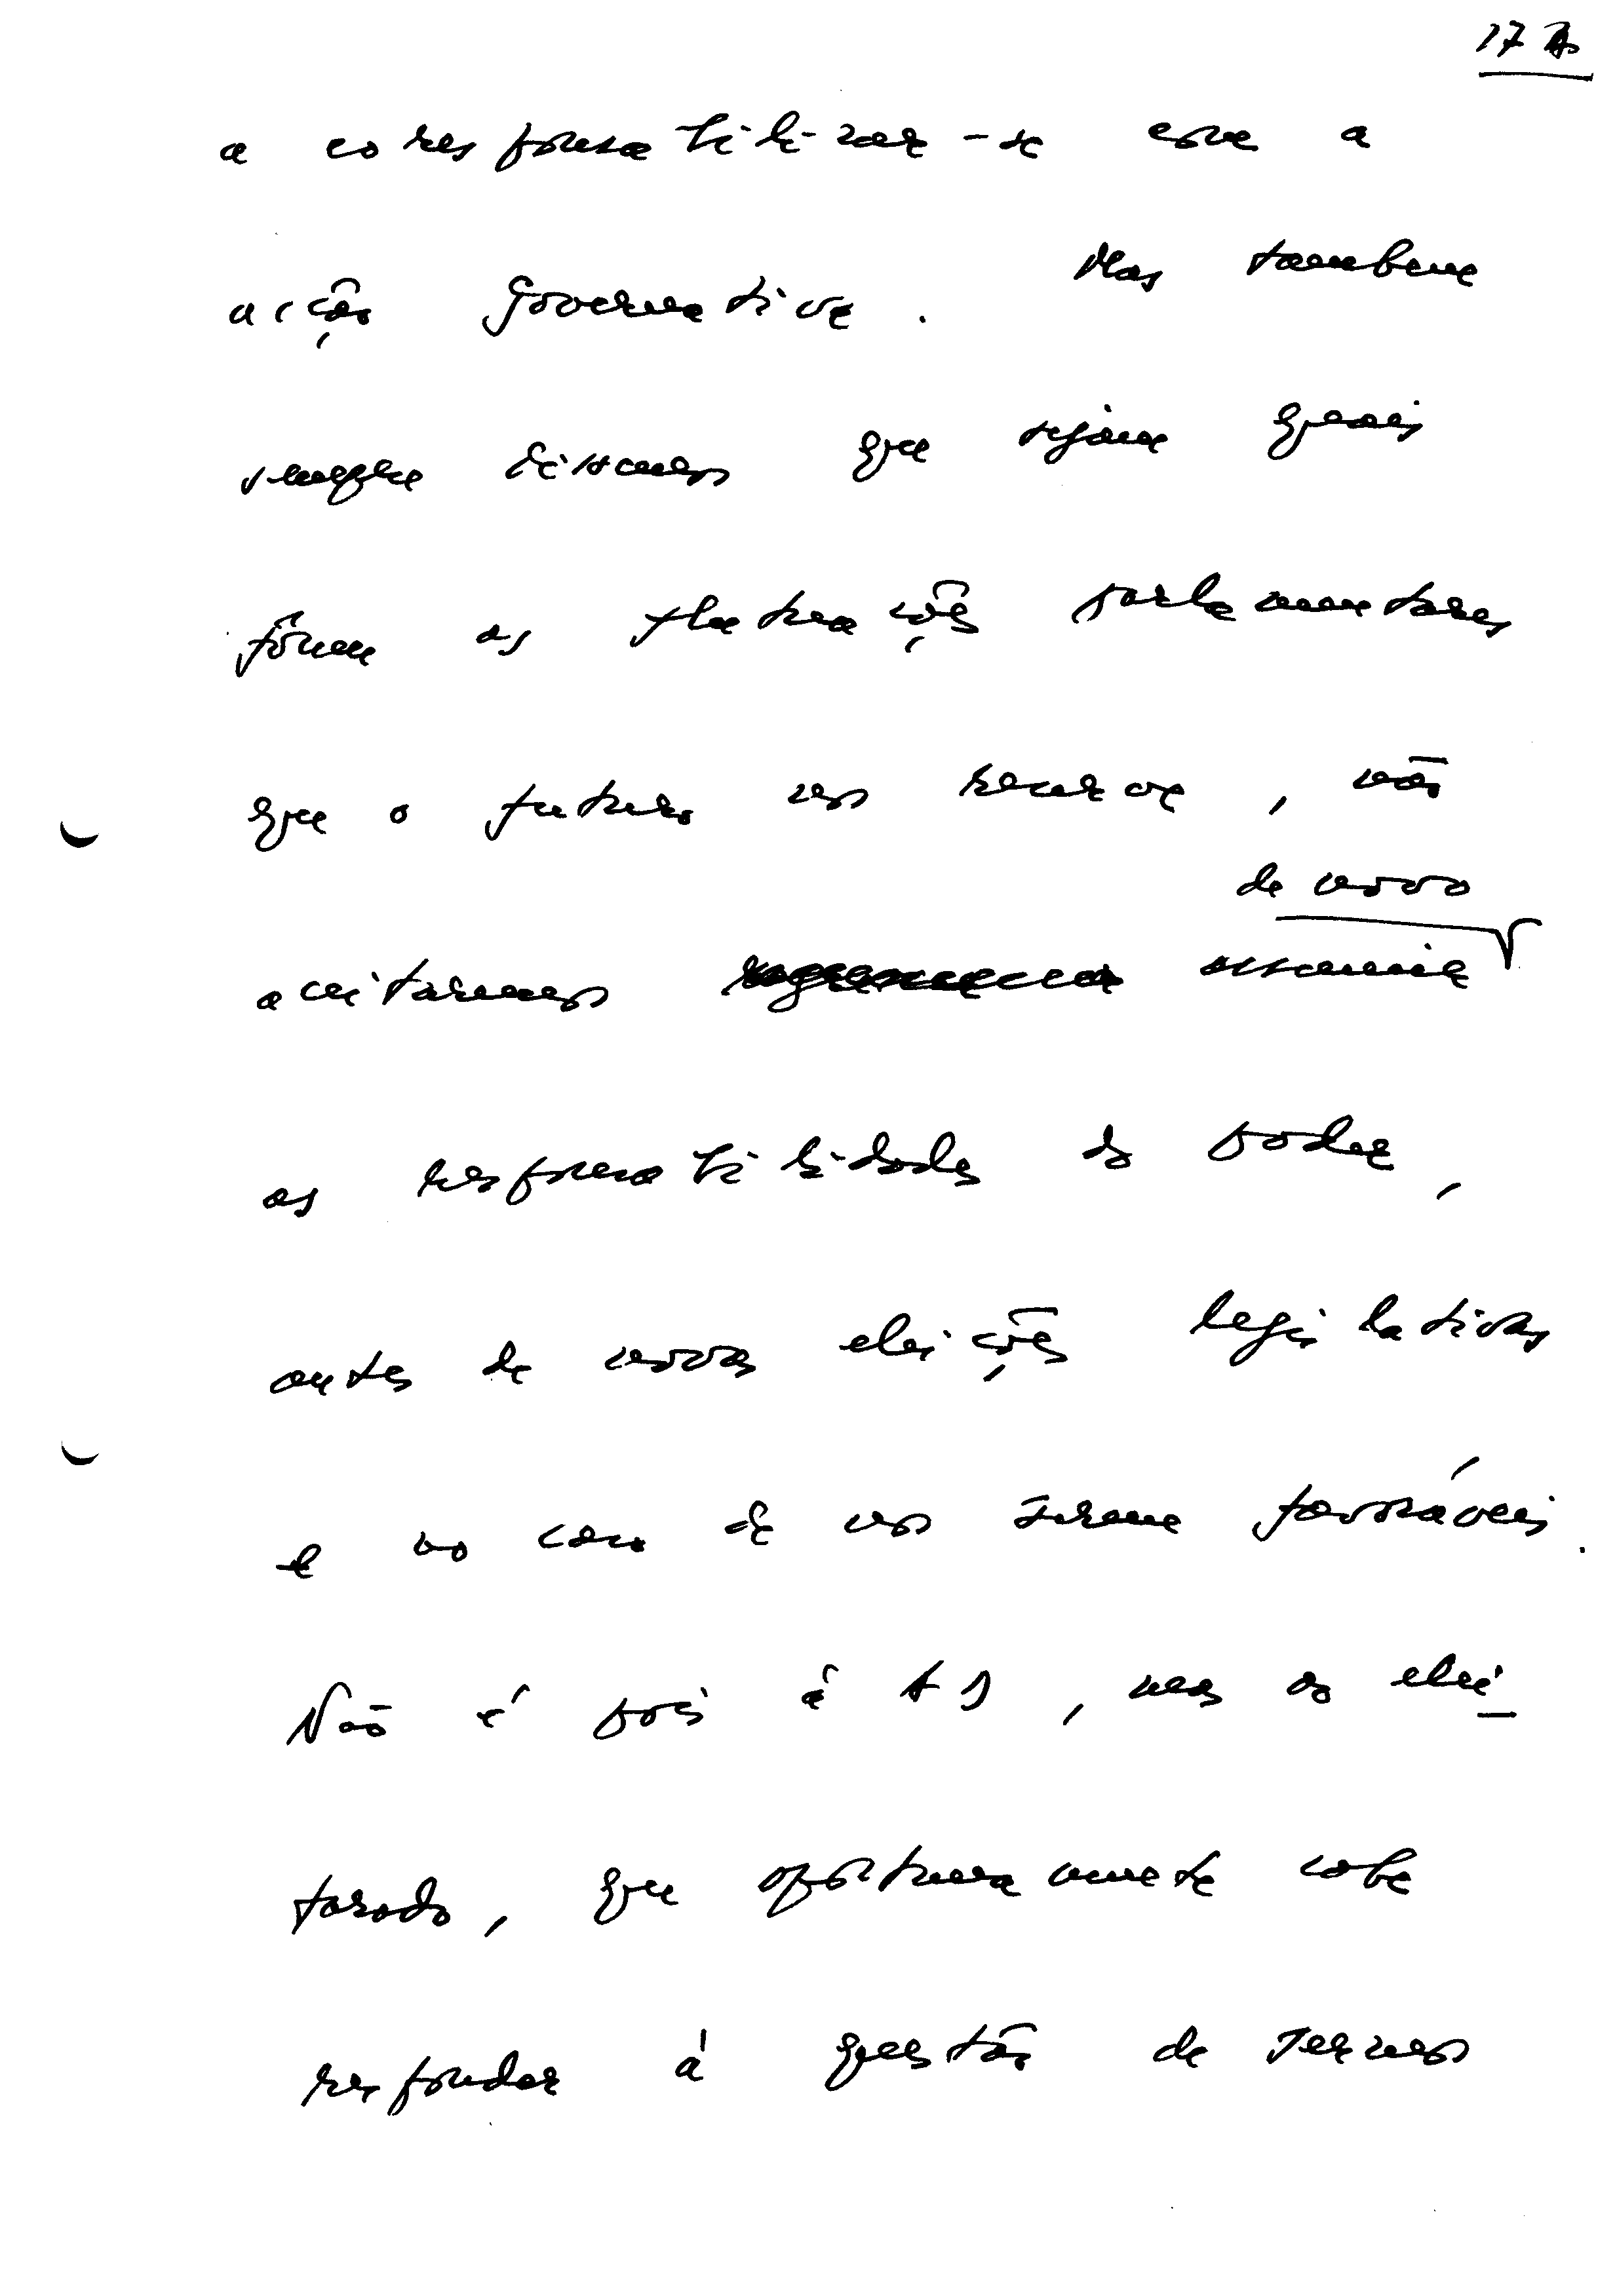 17 A
a coresponsabilizar-se com a
acção governativa. Mas também
sempre dissemos que sejam quais
fôrem as flutuações parlamentares
que o futuro nos reserve, não
de novo
aceitaremos assumir
as responsabilidades do poder,
antes de novas eleições legislativas
e no caso de nos serem favoráveis.
Não é pois à AD, mas ao elei
torado, que oportunamente cabe
responder à questão de sermos